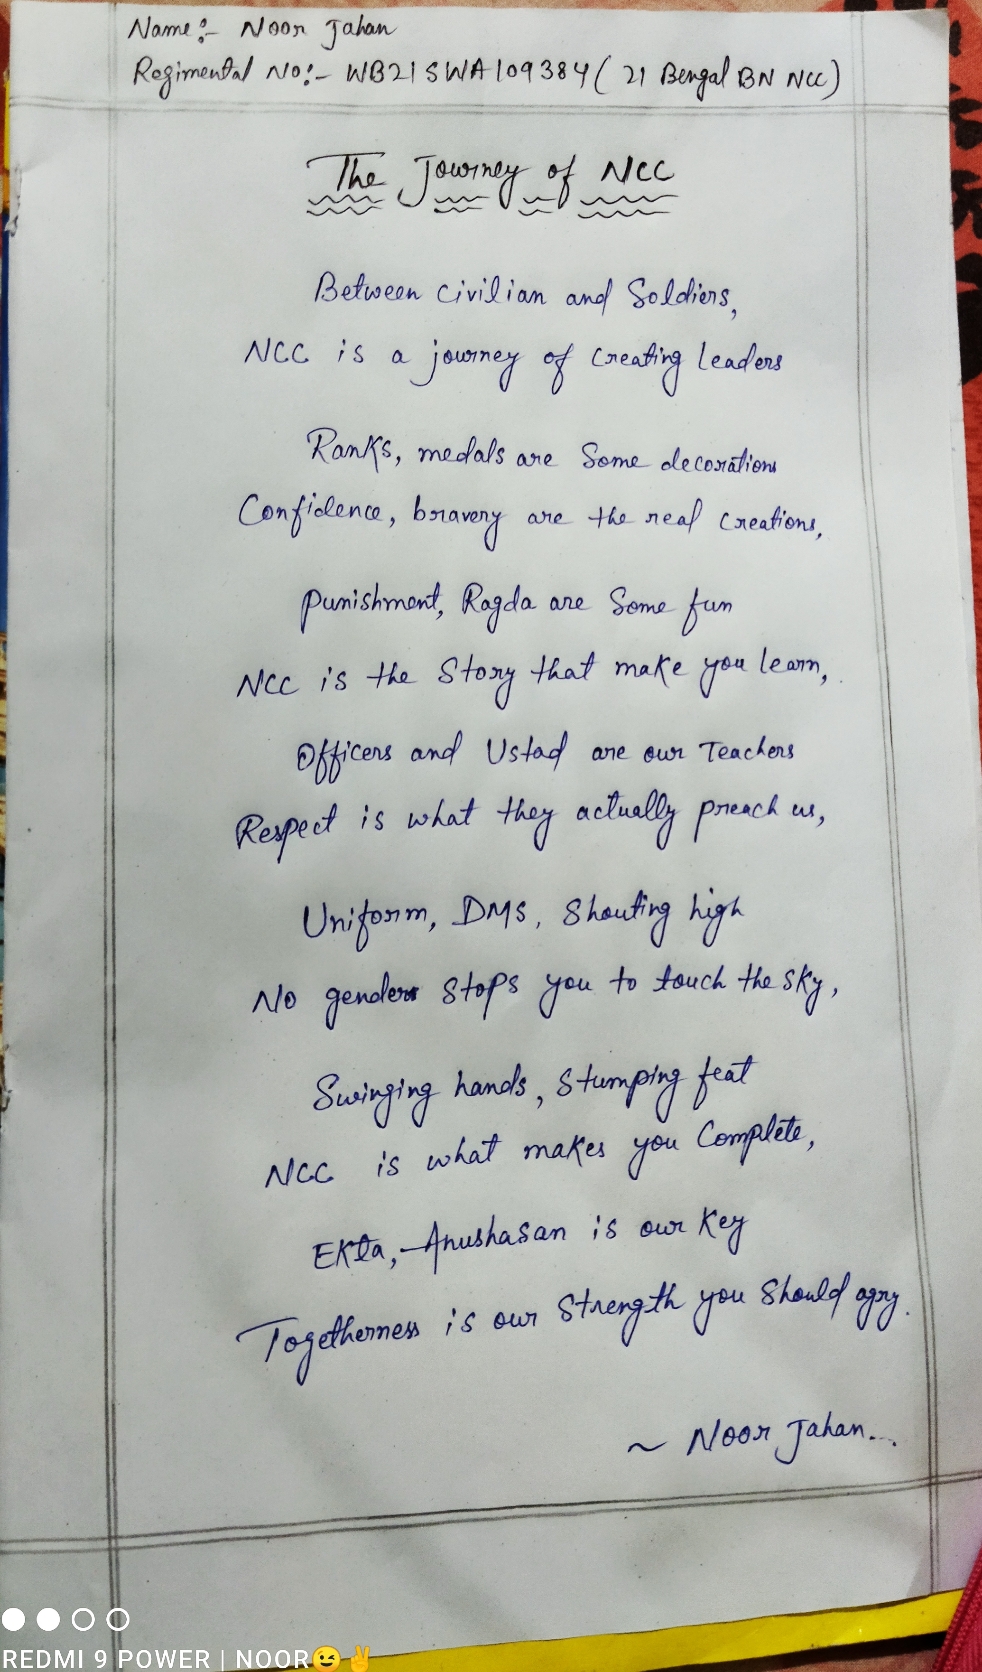 Name:- Noor Jahan
Regimental No:- WB21SWA109384 ( 21 Bengal BN NCC)
The Journey of NCC
Between civilian and Soldiers,
NCC is a journey of creating leaders
Ranks, medals are Some decorations
Confidence, bravery are the real creations,
Punishment, Ragda are Some fun
NCC is the Story that make you learn,
Officers and Ustad are our Teachers
Respect is what they actually preach us,
Uniform, DMS, Shouting high
No gender stops you to touch the sky,
Swinging hands, Stumping feat
NCC is what makes you Complete,
Ekta, Anushasan is our Key
Togetherness is our Strength you Should agry.
~ Noor Jahan...
REDMI 9 POWER | NOOR😉✌